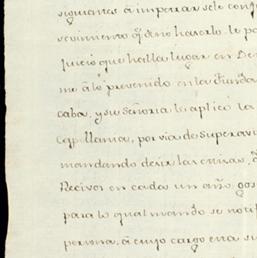 siguientes á imperar sele conf
sevimiento q.e de no hacerlo le pa
juicio que halla lugar en De
me á lo prevenido en la funda
caba, y su Señoria le aplicó la
Cappellania, por via de superavi
mandando decir las misas, q
Recivos en cada un año, gos
para lo qual mandó se noti
persona, á cuyo cargo era su